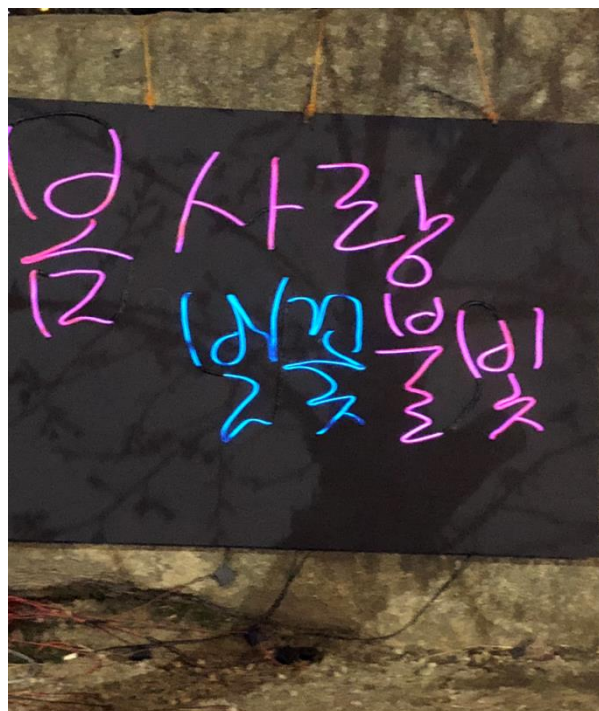 봄 사랑
벚꽃 불빛